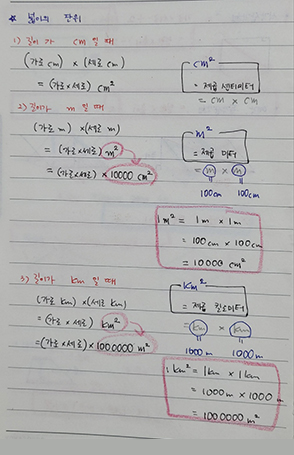 * 넓이의 단위
1) 길이가 cm 일 때
(가로 cm) × (세로 cm)
= (가로×세로) cm²
cm²
= 제곱 센티미터
= cm × cm
2) 길이가 m 일 때
(가로 m) × (세로 m)
= (가로×세로) m²
= (가로×세로) × 10000 cm²
m²
= 제곱 미터
= m × m
100cm 100cm
1 m² = 1m × 1m
= 100cm × 100cm
= 10000 cm²
3) 길이가 km 일 때
(가로 km) × (세로 km)
= (가로×세로) km²
= (가로×세로) × 1000000 m²
km²
= 제곱 킬로미터
= km × km
1000m 1000m
1 km² = 1km × 1km
= 1000m × 1000m
= 1000000 m²